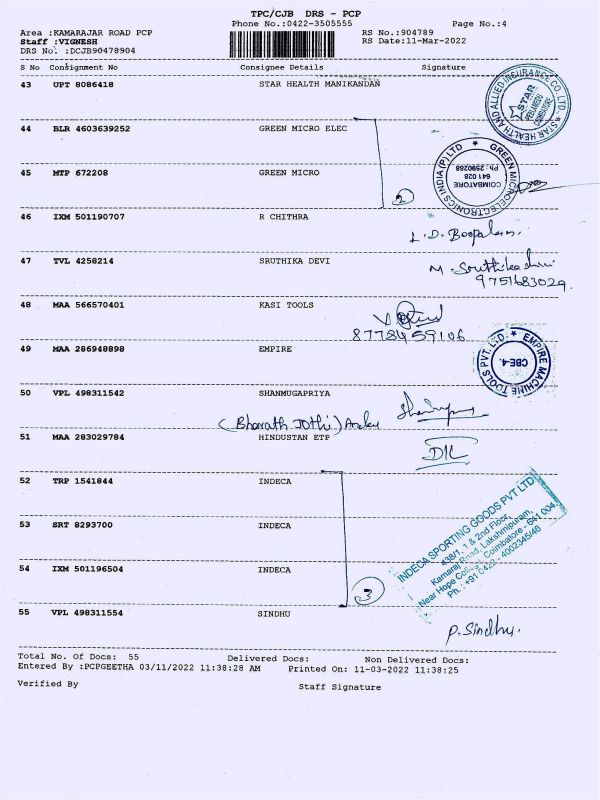 TPC/CJB DRS - PCP
Phone No.:0422-3505555
Page No.:4
Area :KAMARAJAR ROAD PCP
RS No.:904789
Staff :VIGNESH
RS Date:11-Mar-2022
DRS No. :DCJB90478904
S No Consignment No Consignee Details Signature
43 UPT 8086418 STAR HEALTH MANIKANDAN
STAR HEALTH AND ALLIED INSURANCE CO. LTD.
STAR
COIMBATORE
44 BLR 4603639252 GREEN MICRO ELEC
45 MTP 672208 GREEN MICRO
2
GREEN MICROELECTRONICS INDIA (P) LTD
COIMBATORE
641 028
Ph: 2590288
46 IXM 501190707 R CHITHRA
L. D. Boopalan.
47 TVL 4258214 SRUTHIKA DEVI
M. Sruthika devi
9751683029.
48 MAA 566570401 KASI TOOLS
8778459106
49 MAA 286948898 EMPIRE
EMPIRE MACHINE TOOLS PVT LTD.
CBE-4.
50 VPL 498311542 SHANMUGAPRIYA
(Bharath Jothi)
51 MAA 283029784 HINDUSTAN ETP
52 TRP 1541844 INDECA
53 SRT 8293700 INDECA
54 IXM 501196504 INDECA
3
INDECA SPORTING GOODS PVT LTD
438/1, 1 & 2nd Floor,
Kamaraj Road, Lakshmipuram,
Near Hope College, Coimbatore - 641 004.
Ph.: +91 0422 - 4002345/46
55 VPL 498311554 SINDHU
P. Sindhu.
Total No. Of Docs: 55 Delivered Docs: Non Delivered Docs:
Entered By :PCPGEETHA 03/11/2022 11:38:28 AM Printed On: 11-03-2022 11:38:25
Verified By Staff Signature